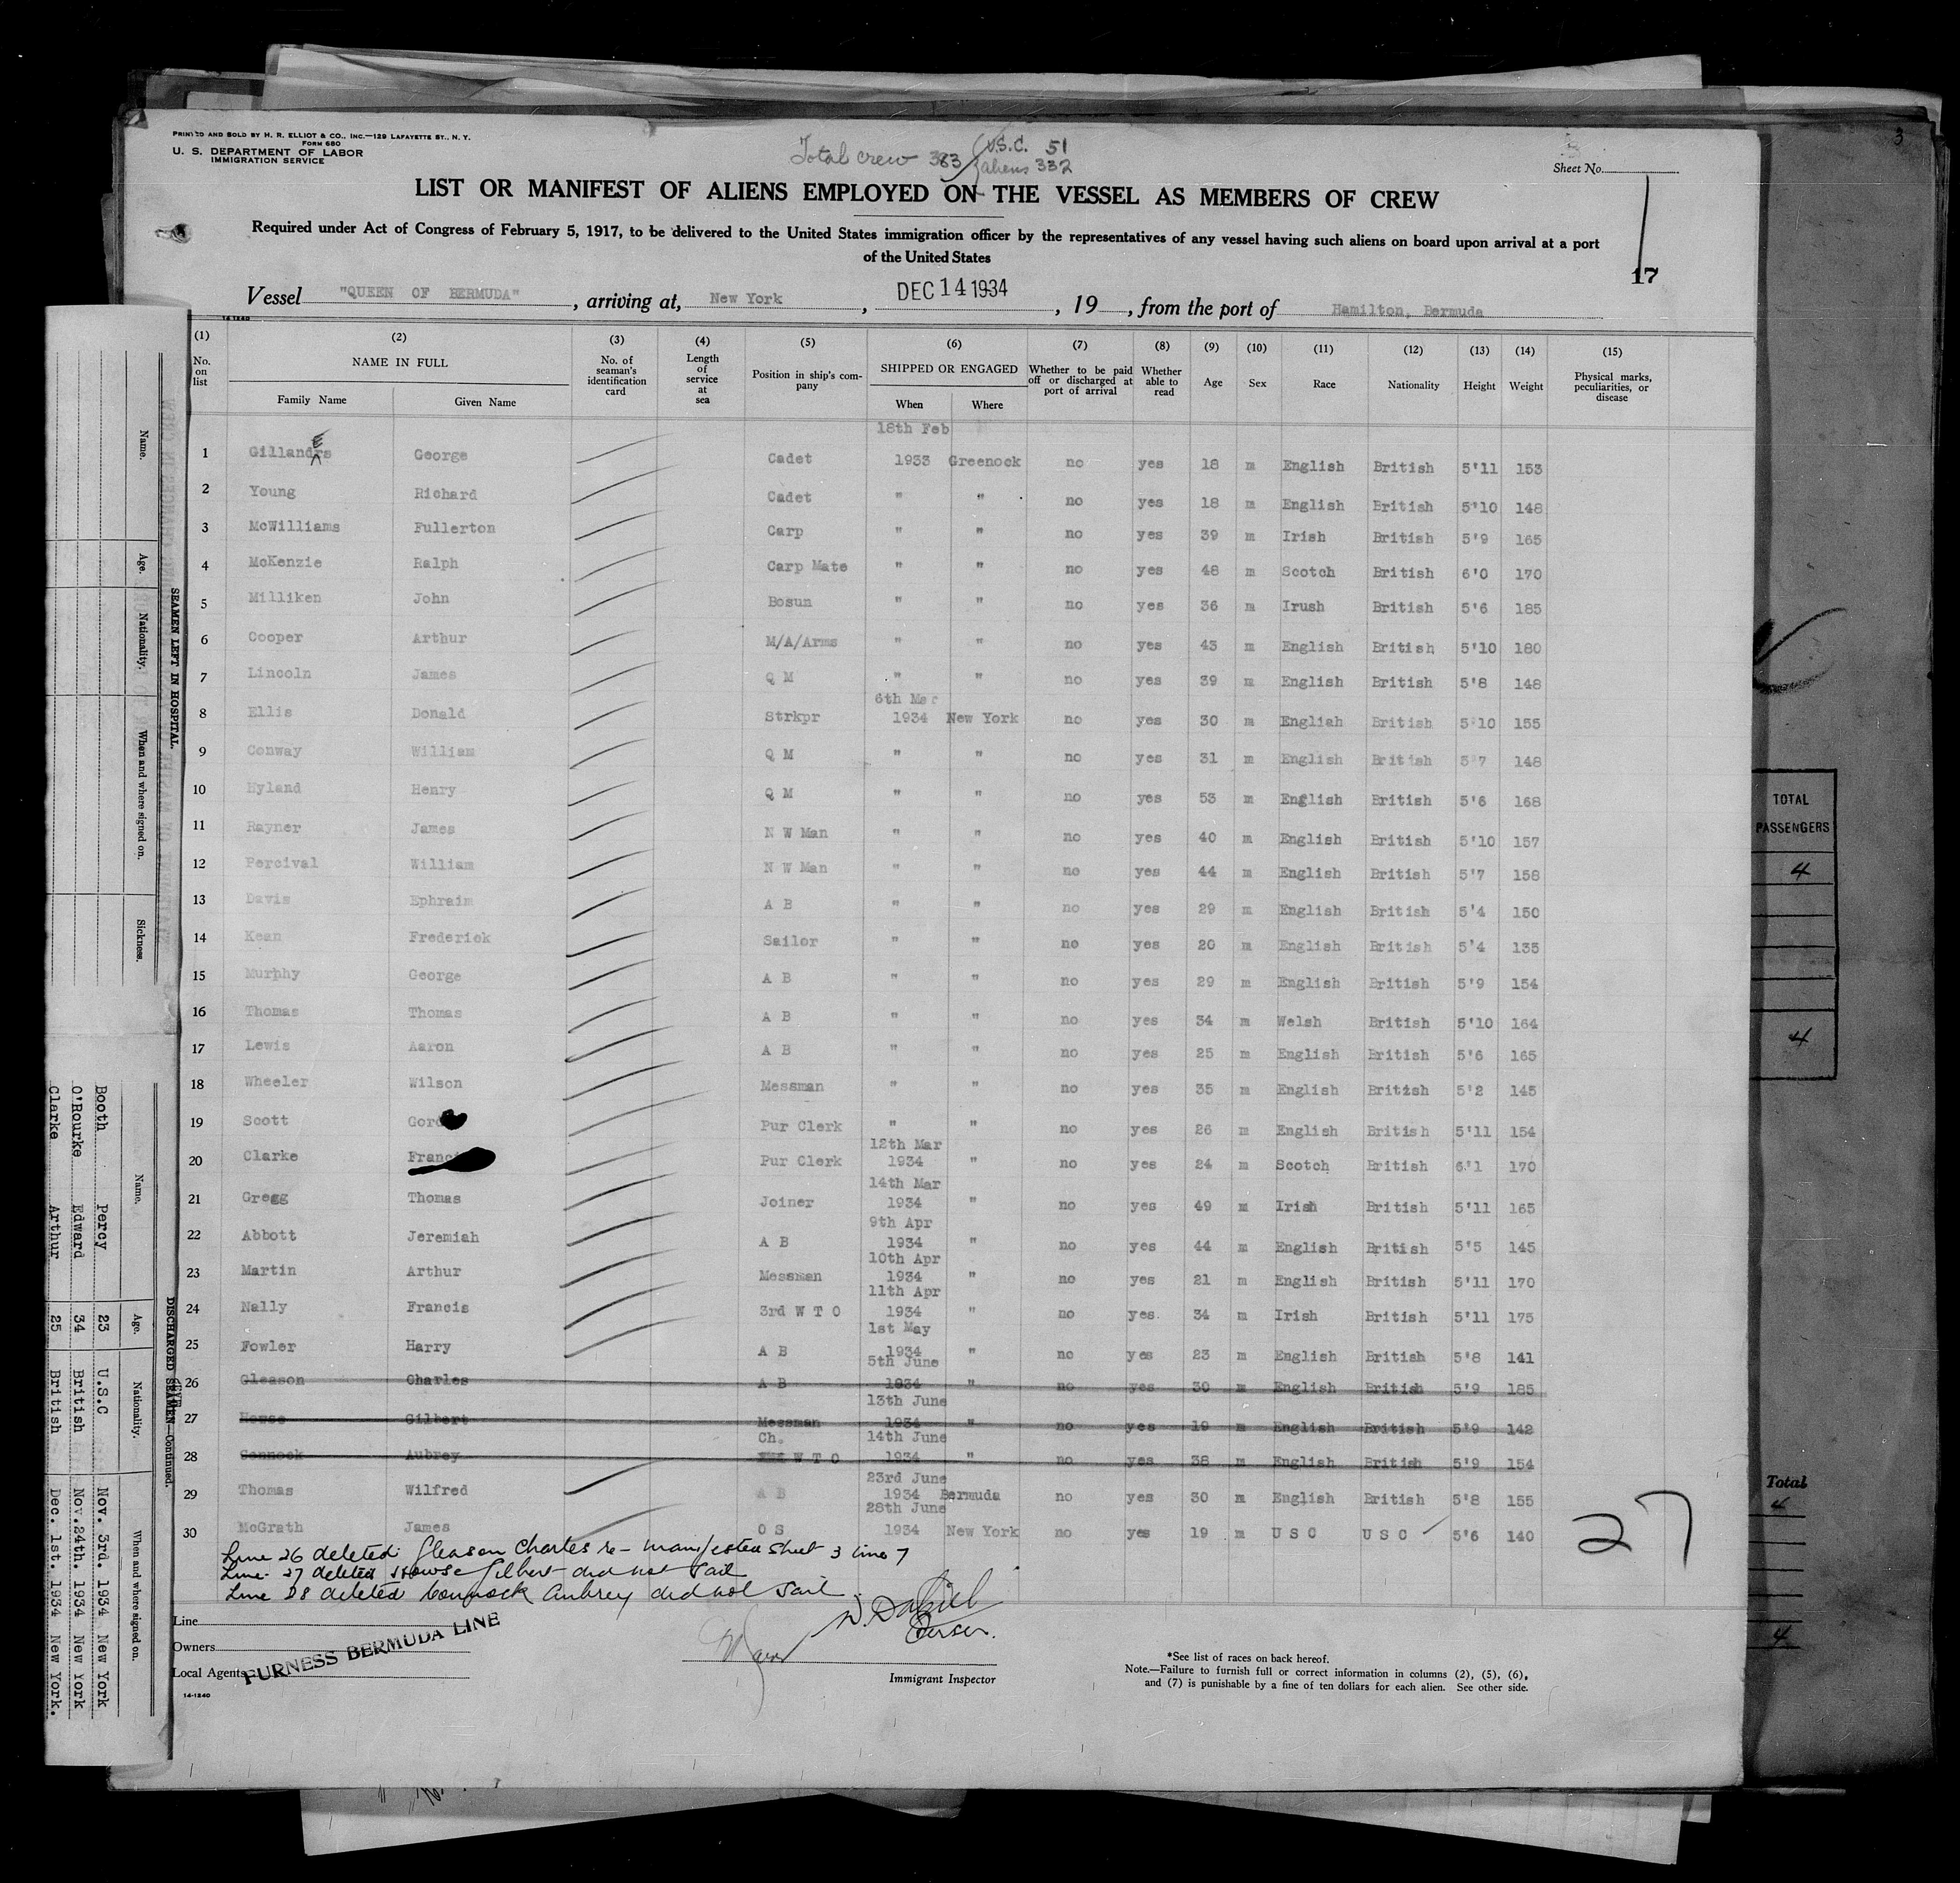 PRINTED AND SOLD BY H. R. ELLIOT & CO., INC.—129 LAFAYETTE ST., N. Y.
FORM 680
U. S. DEPARTMENT OF LABOR
IMMIGRATION SERVICE
Total crew 383 U.S.C. 51
aliens 332
Sheet No.
3
LIST OR MANIFEST OF ALIENS EMPLOYED ON THE VESSEL AS MEMBERS OF CREW
Required under Act of Congress of February 5, 1917, to be delivered to the United States immigration officer by the representatives of any vessel having such aliens on board upon arrival at a port
of the United States
17
Vessel "QUEEN OF BERMUDA", arriving at, New York, DEC 14 1934, 19, from the port of Hamilton, Bermuda
14-1240
(1) (2) (3) (4) (5) (6) (7) (8) (9) (10) (11) (12) (13) (14) (15)
No. on list NAME IN FULL Family Name Given Name No. of seaman's identification card Length of service at sea Position in ship's company SHIPPED OR ENGAGED When Where Whether to be paid off or discharged at port of arrival Whether able to read Age Sex Race Nationality Height Weight Physical marks, peculiarities, or disease
18th Feb
1 Gillanders George Cadet 1933 Greenock no yes 18 m English British 5'11 153
2 Young Richard Cadet " " no yes 18 m English British 5'10 148
3 McWilliams Fullerton Carp " " no yes 39 m Irish British 5'9 165
4 McKenzie Ralph Carp Mate " " no yes 48 m Scotch British 6'0 170
5 Milliken John Bosun " " no yes 36 m Irush British 5'6 185
6 Cooper Arthur M/A/Arms " " no yes 43 m English British 5'10 180
7 Lincoln James Q M " " no yes 39 m English British 5'8 148
6th Mar
8 Ellis Donald Strkpr 1934 New York no yes 30 m English British 5'10 155
9 Conway William Q M " " no yes 31 m English British 5'7 148
10 Hyland Henry Q M " " no yes 53 m English British 5'6 168
11 Rayner James N W Man " " no yes 40 m English British 5'10 157
12 Percival William N W Man " " no yes 44 m English British 5'7 158
13 Davis Ephraim A B " " no yes 29 m English British 5'4 150
14 Kean Frederick Sailor " " no yes 20 m English British 5'4 135
15 Murphy George A B " " no yes 29 m English British 5'9 154
16 Thomas Thomas A B " " no yes 34 m Welsh British 5'10 164
17 Lewis Aaron A B " " no yes 25 m English British 5'6 165
18 Wheeler Wilson Messman " " no yes 35 m English British 5'2 145
19 Scott Pur Clerk " " no yes 26 m English British 5'11 154
12th Mar
20 Clarke Pur Clerk 1934 " no yes 24 m Scotch British 6'1 170
14th Mar
21 Gregg Thomas Joiner 1934 " no yes 49 m Irish British 5'11 165
9th Apr
22 Abbott Jeremiah A B 1934 " no yes 44 m English British 5'5 145
10th Apr
23 Martin Arthur Messman 1934 " no yes 21 m English British 5'11 170
11th Apr
24 Nally Francis 3rd W T O 1934 " no yes. 34 m Irish British 5'11 175
1st May
25 Fowler Harry A B 1934 " no yes 23 m English British 5'8 141
5th June
26 Gleason Charles A B 1934 " no yes 30 m English British 5'9 185
13th June
27 Howse Gilbert Messman 1934 " no yes 19 m English British 5'9 142
Ch. 14th June
28 Connock Aubrey W T O 1934 " no yes 38 m English British 5'9 154
23rd June
29 Thomas Wilfred A B 1934 Bermuda no yes 30 m English British 5'8 155
28th June
30 McGrath James O S 1934 New York no yes 19 m U S C U S C 5'6 140
27
Line 26 deleted Gleason Charles re-manifested sheet 3 line 7
Line 27 deleted Howse Gilbert did not sail
Line 28 deleted Connock Aubrey did not sail
Purser.
Line
Owners
Local Agents
FURNESS BERMUDA LINE
14-1240
Immigrant Inspector
*See list of races on back hereof.
Note.—Failure to furnish full or correct information in columns (2), (5), (6),
and (7) is punishable by a fine of ten dollars for each alien. See other side.
SEAMEN LEFT IN HOSPITAL.
Name. Age. Nationality. When and where signed on. Sickness.
DISCHARGED SEAMEN—Continued.
Name. Age. Nationality. When and where signed on.
Booth Percy 23 U.S.C Nov. 3rd. 1934 New York
O'Rourke Edward 34 British Nov.24th. 1934 New York
Clarke Arthur 25 British Dec. 1st. 1934 New York.
TOTAL
PASSENGERS
4
4
Total
4
4